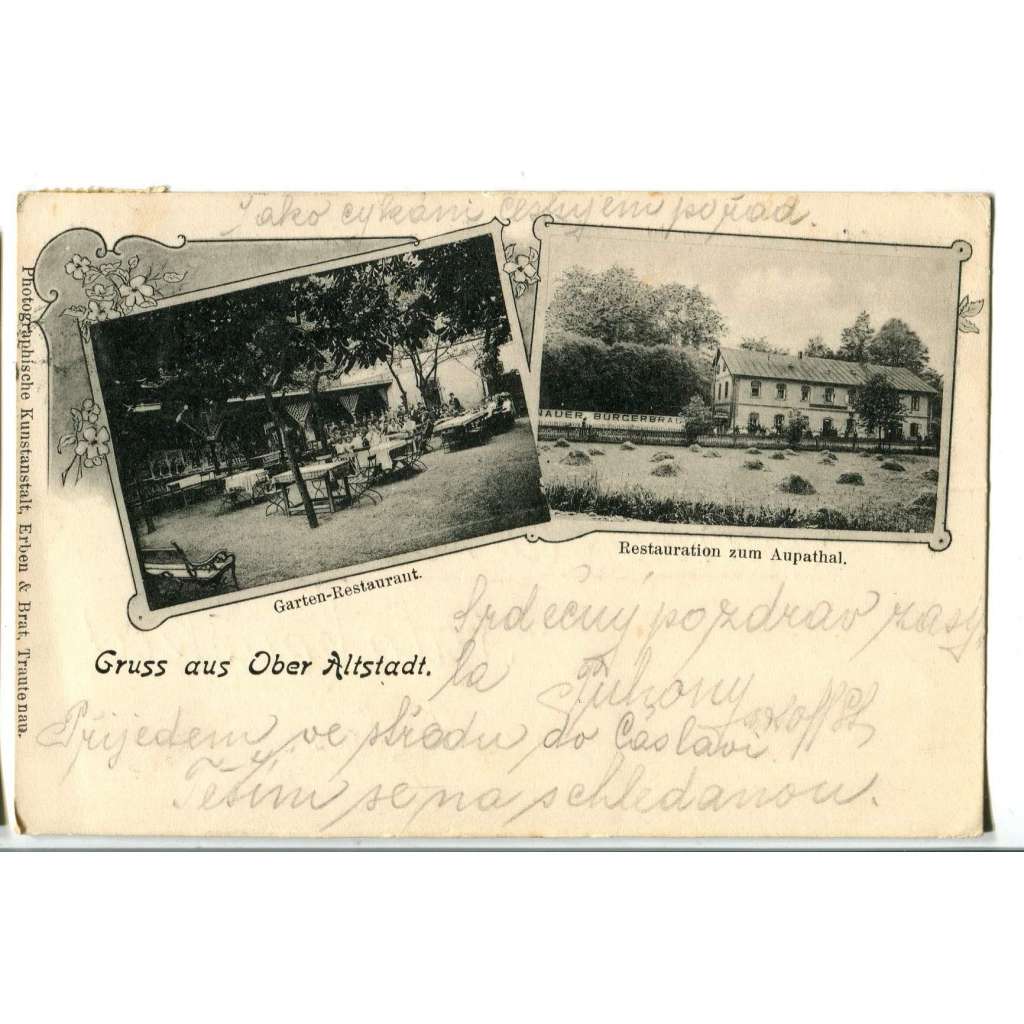 Jako cykáni pořád.
Photographische Kunstanstalt, Erben & Brat, Trautenau.
NAUER BÜRGERBRÄU
Garten-Restaurant.
Restauration zum Aupathal.
Gruss aus Ober Altstadt.
Srdečný pozdrav zasý
la
Přijedem ve středu do Čáslavi
Těším se na schledanou.